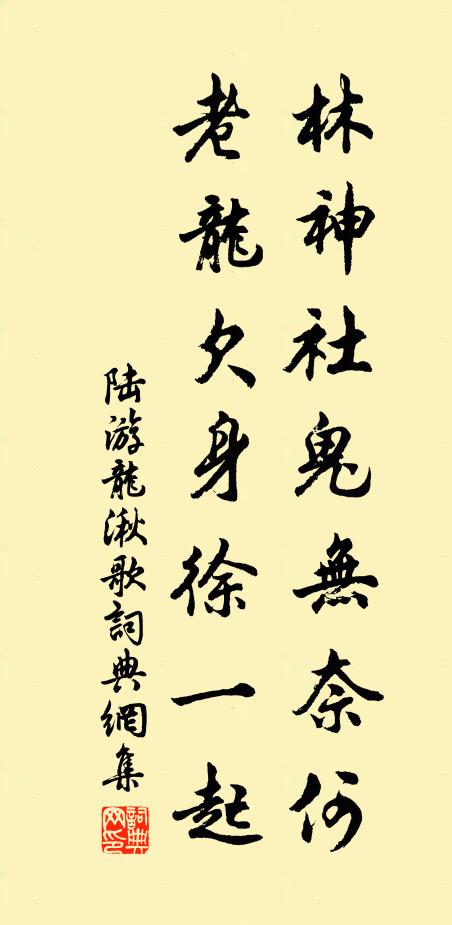 林神社鬼無奈何
老龍欠身徐一起
陆游龍湫歌詞典網集
詞典网印